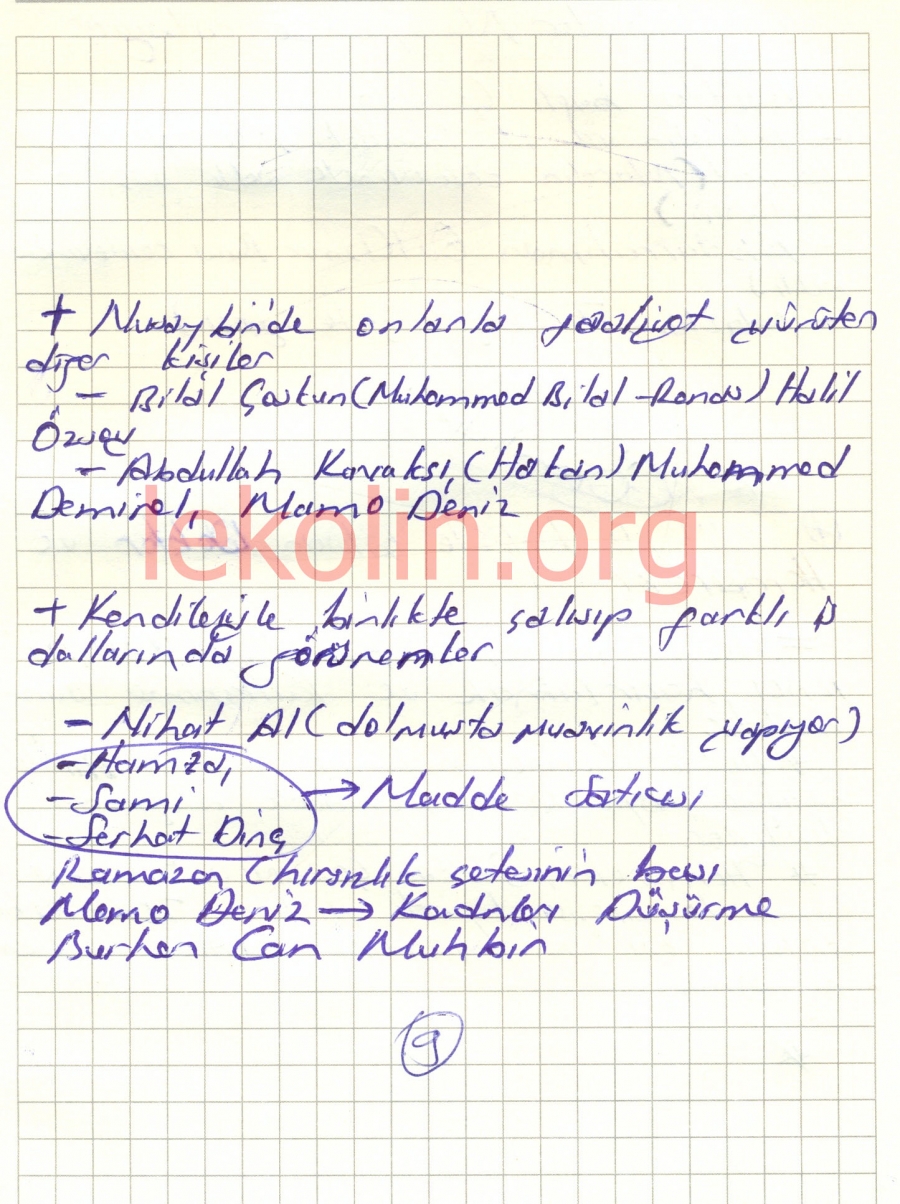 + Nusaybin'de onlarla faaliyet yürüten
diğer kişiler
- Bilal Çoskun (Muhammed Bilal - ) Halil
- Abdullah (Hakan) Muhammed
Demirel, Mamo Deniz
lekolin.org
+ Kendileriyle birlikte çalışıp farklı iş
dallarında görünenler
- Nihat Al (dolmuşta muavinlik yapıyor)
- Hamza,
- Sami → Madde Satıcısı
- Serhat Dinç
Ramazan (hırsızlık çetesinin başı
Memo Deniz → Kadınları Düşürme
Burhan Can Muhbir
9